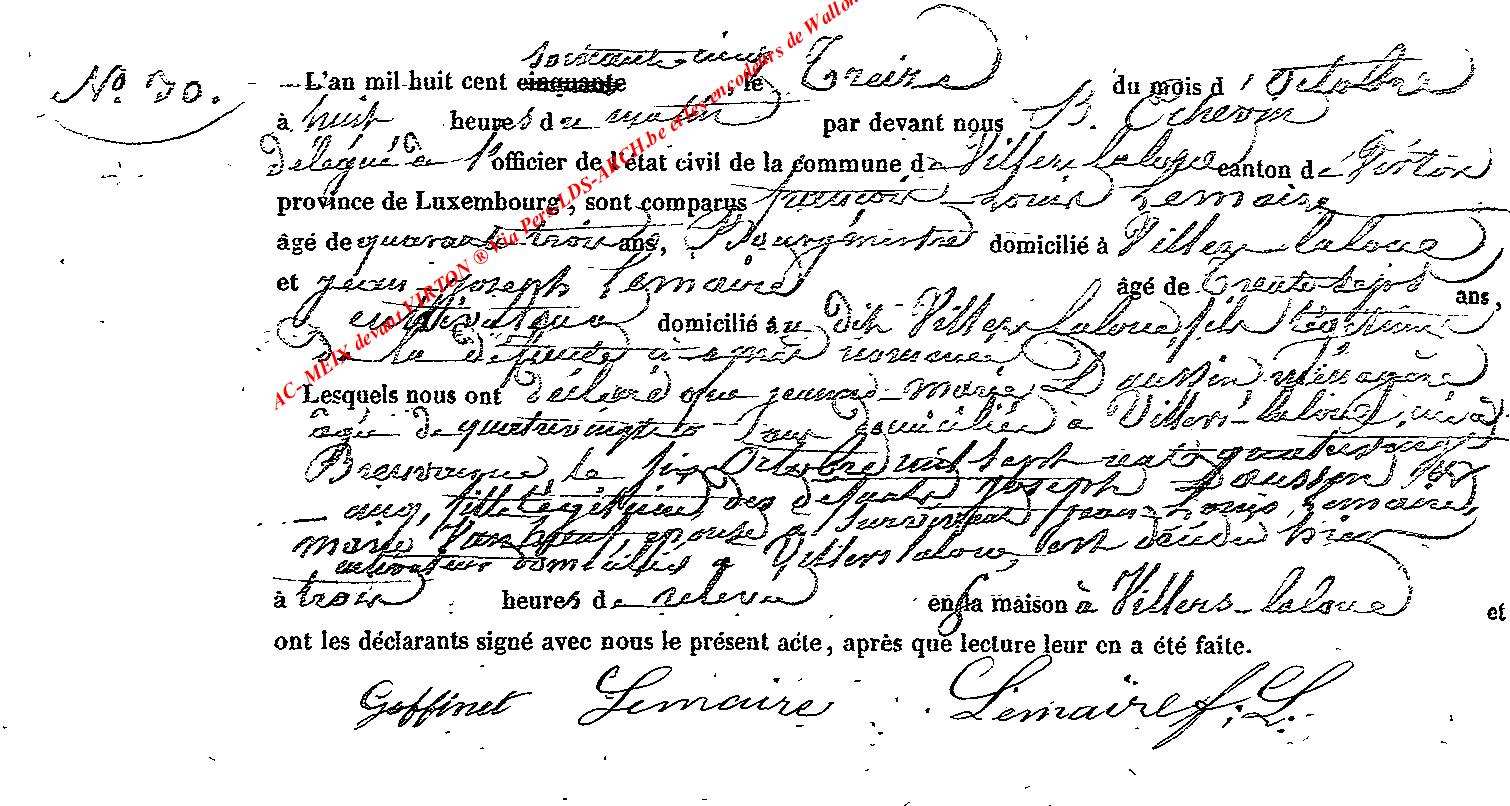 N°. 30.
L'an mil huit cent cinquante soixante-cinq, le Treize du mois d'Octobre
à huit heures du matin par devant nous B. Echevin
délégué à l'officier de l'état civil de la commune de Villers laloue canton de Virton
province de Luxembourg, sont comparus françois Louis Lemaire
âgé de quarante trois ans, Bourgmestre domicilié à Villers laloue
et jean-joseph Lemaire âgé de Trente sept ans,
cultivateur domicilié au dit Villers laloue, fils légitime
de la défunte ci-après nommée
Lesquels nous ont déclaré que jeanne-marie ménagère
âgée de quatrevingts ans domiciliée à Villers-laloue, née à
le six Octobre mil sept cent quatrevingt
cinq, fille légitime des défunts joseph
marie épouse à survivant jean-Louis Lemaire,
cultivateur domicilié à Villers laloue, est décédée hier
à trois heures de relevée en sa maison à Villers-laloue et
ont les déclarants signé avec nous le présent acte, après que lecture leur en a été faite.
Goffinet Lemaire Lemaire f. L.
AC- MEIX devant VIRTON ® Via Pers LDS-ARCH.be et les encodeurs de Wallon